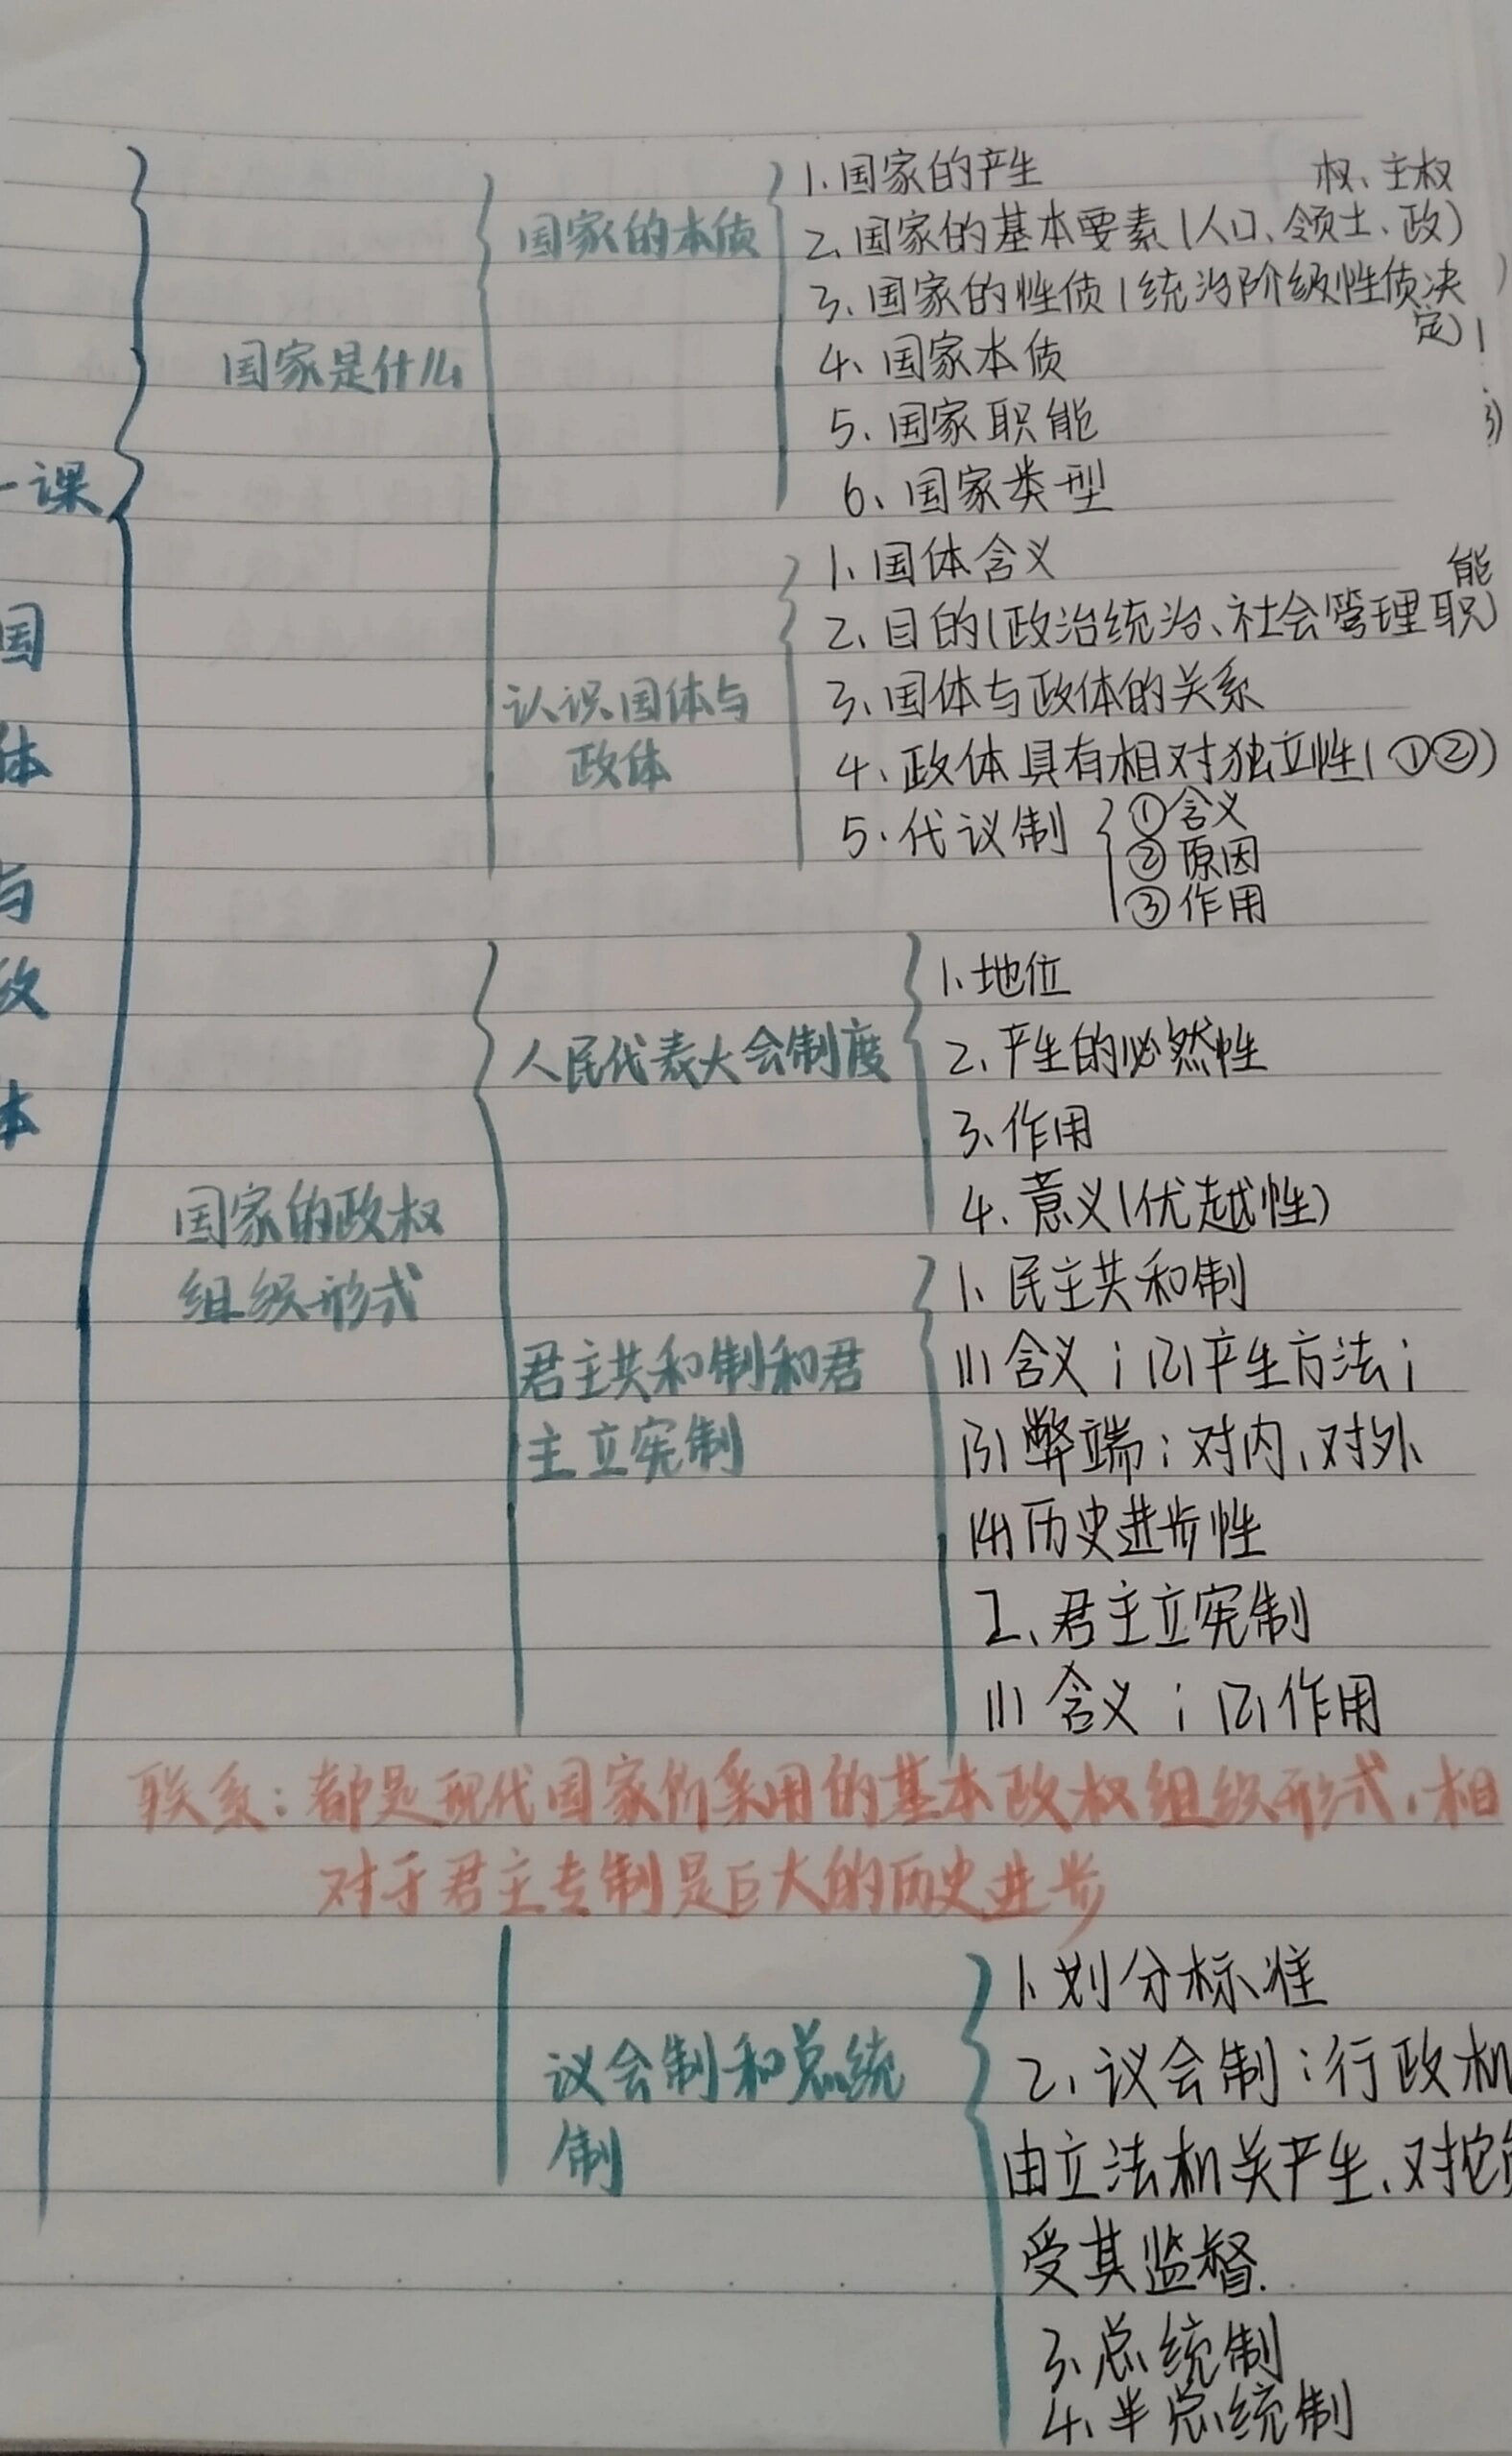 一课
国
体
与
政
体
国家是什么
国家的本质
1.国家的产生
2.国家的基本要素(人口、领土、政
权、主权)
3.国家的性质(统治阶级性质决
定)
4、国家本质
5、国家职能
6、国家类型
认识国体与
政体
1、国体含义
2、目的(政治统治、社会管理职
能)
3、国体与政体的关系
4、政体具有相对独立性(①②)
5.代议制
①含义
②原因
③作用
国家的政权
组织形式
人民代表大会制度
1、地位
2、产生的必然性
3、作用
4.意义(优越性)
君主共和制和君
主立宪制
1、民主共和制
(1)含义;(2)产生方法;
(3)弊端:对内、对外
(4)历史进步性
2、君主立宪制
(1)含义;(2)作用
联系:都是现代国家所采用的基本政权组织形式,相
对于君主专制是巨大的历史进步
议会制和总统
制
1、划分标准
2、议会制:行政机
由立法机关产生、对它负
受其监督.
3、总统制
4、半总统制